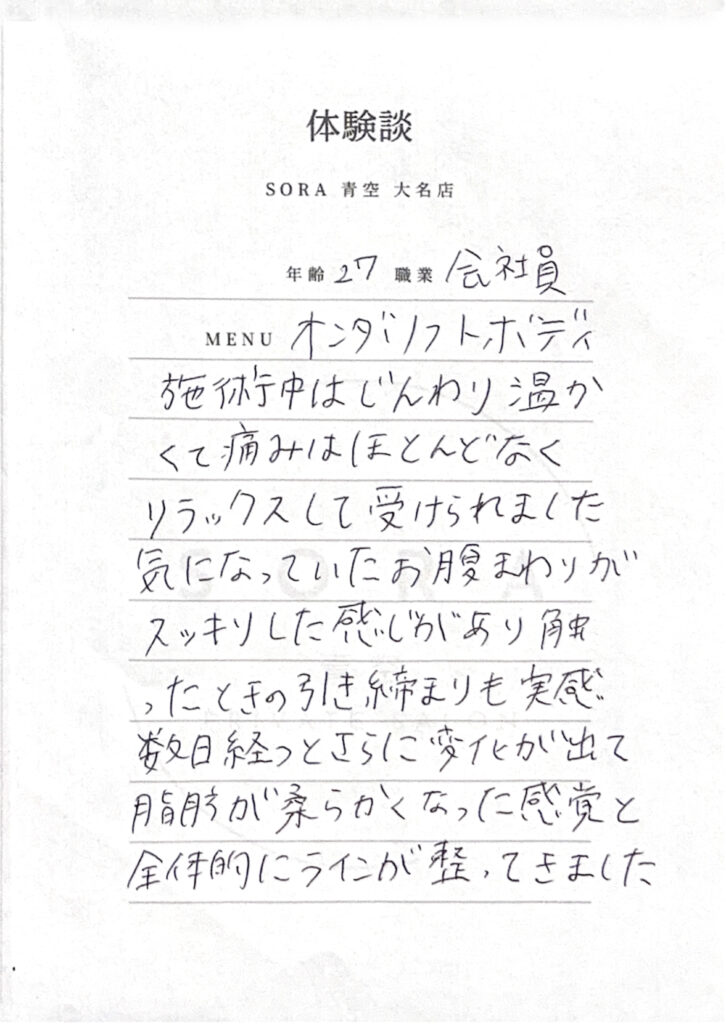 体験談
SORA 青空 大名店
年齢 27 職業 会社員
MENU オンダリフトボディ
施術中はじんわり温か
くて痛みはほとんどなく
リラックスして受けられました
気になっていたお腹まわりが
スッキリした感じがあり触
ったときの引き締まりも実感
数日経つとさらに変化が出て
脂肪が柔らかくなった感覚と
全体的にラインが整ってきました